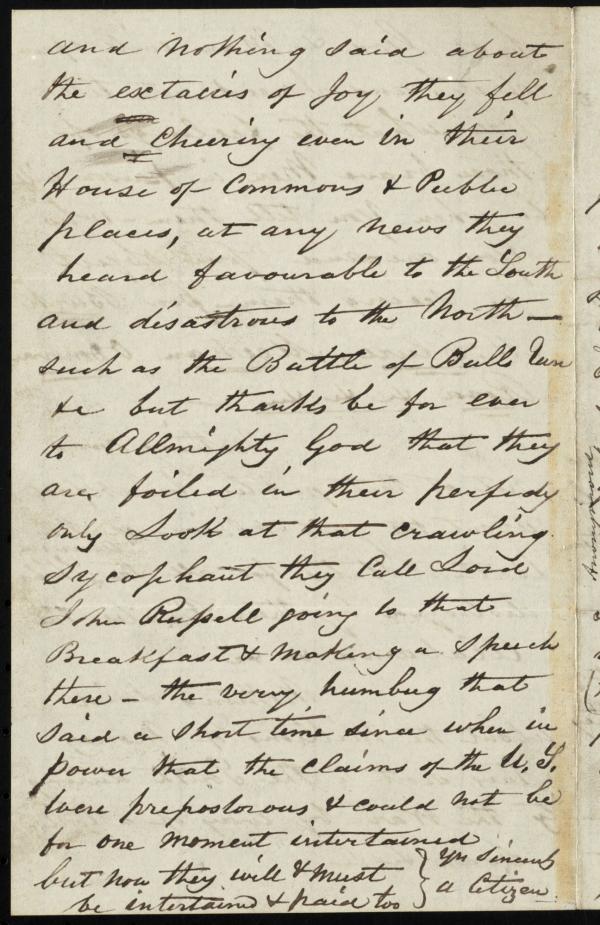 and nothing said about
the extacies of Joy they fell
and cheering even in their
House of Commons & Public
places, at any news they
heard favourable to the South
and disastrous to the North —
such as the Battle of Bulls Run
&c but thanks be for ever
to Allmighty God that they
are foiled in their perfidy
only Look at that crawling
Sycophant they Call Lord
John Russell going to that
Breakfast & Making a Speech
there – the very humbug that
said a short time since when in
power that the claims of the U.S.
were prepostorous & could not be
for one moment intertained
but now they will & must
be intertaind & paid too
Yrs Sincerely
a Citizen
Anonymous